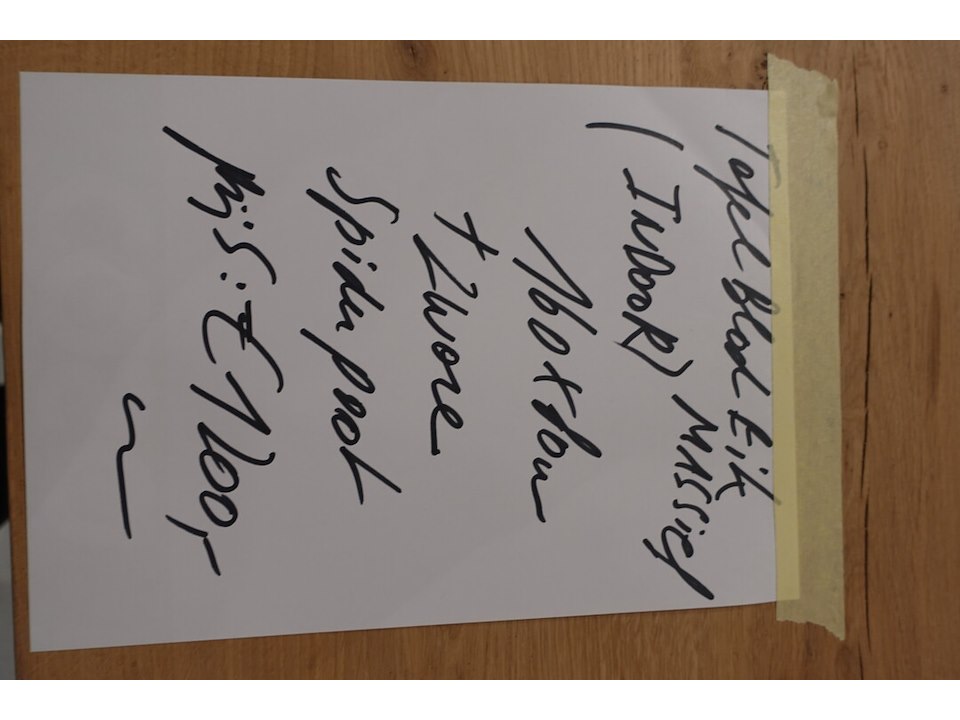 Tafel Blad Eik
(INDOOR) MASSief
160 x
+ Zware
Spider poot
Prijs: € 1200,-